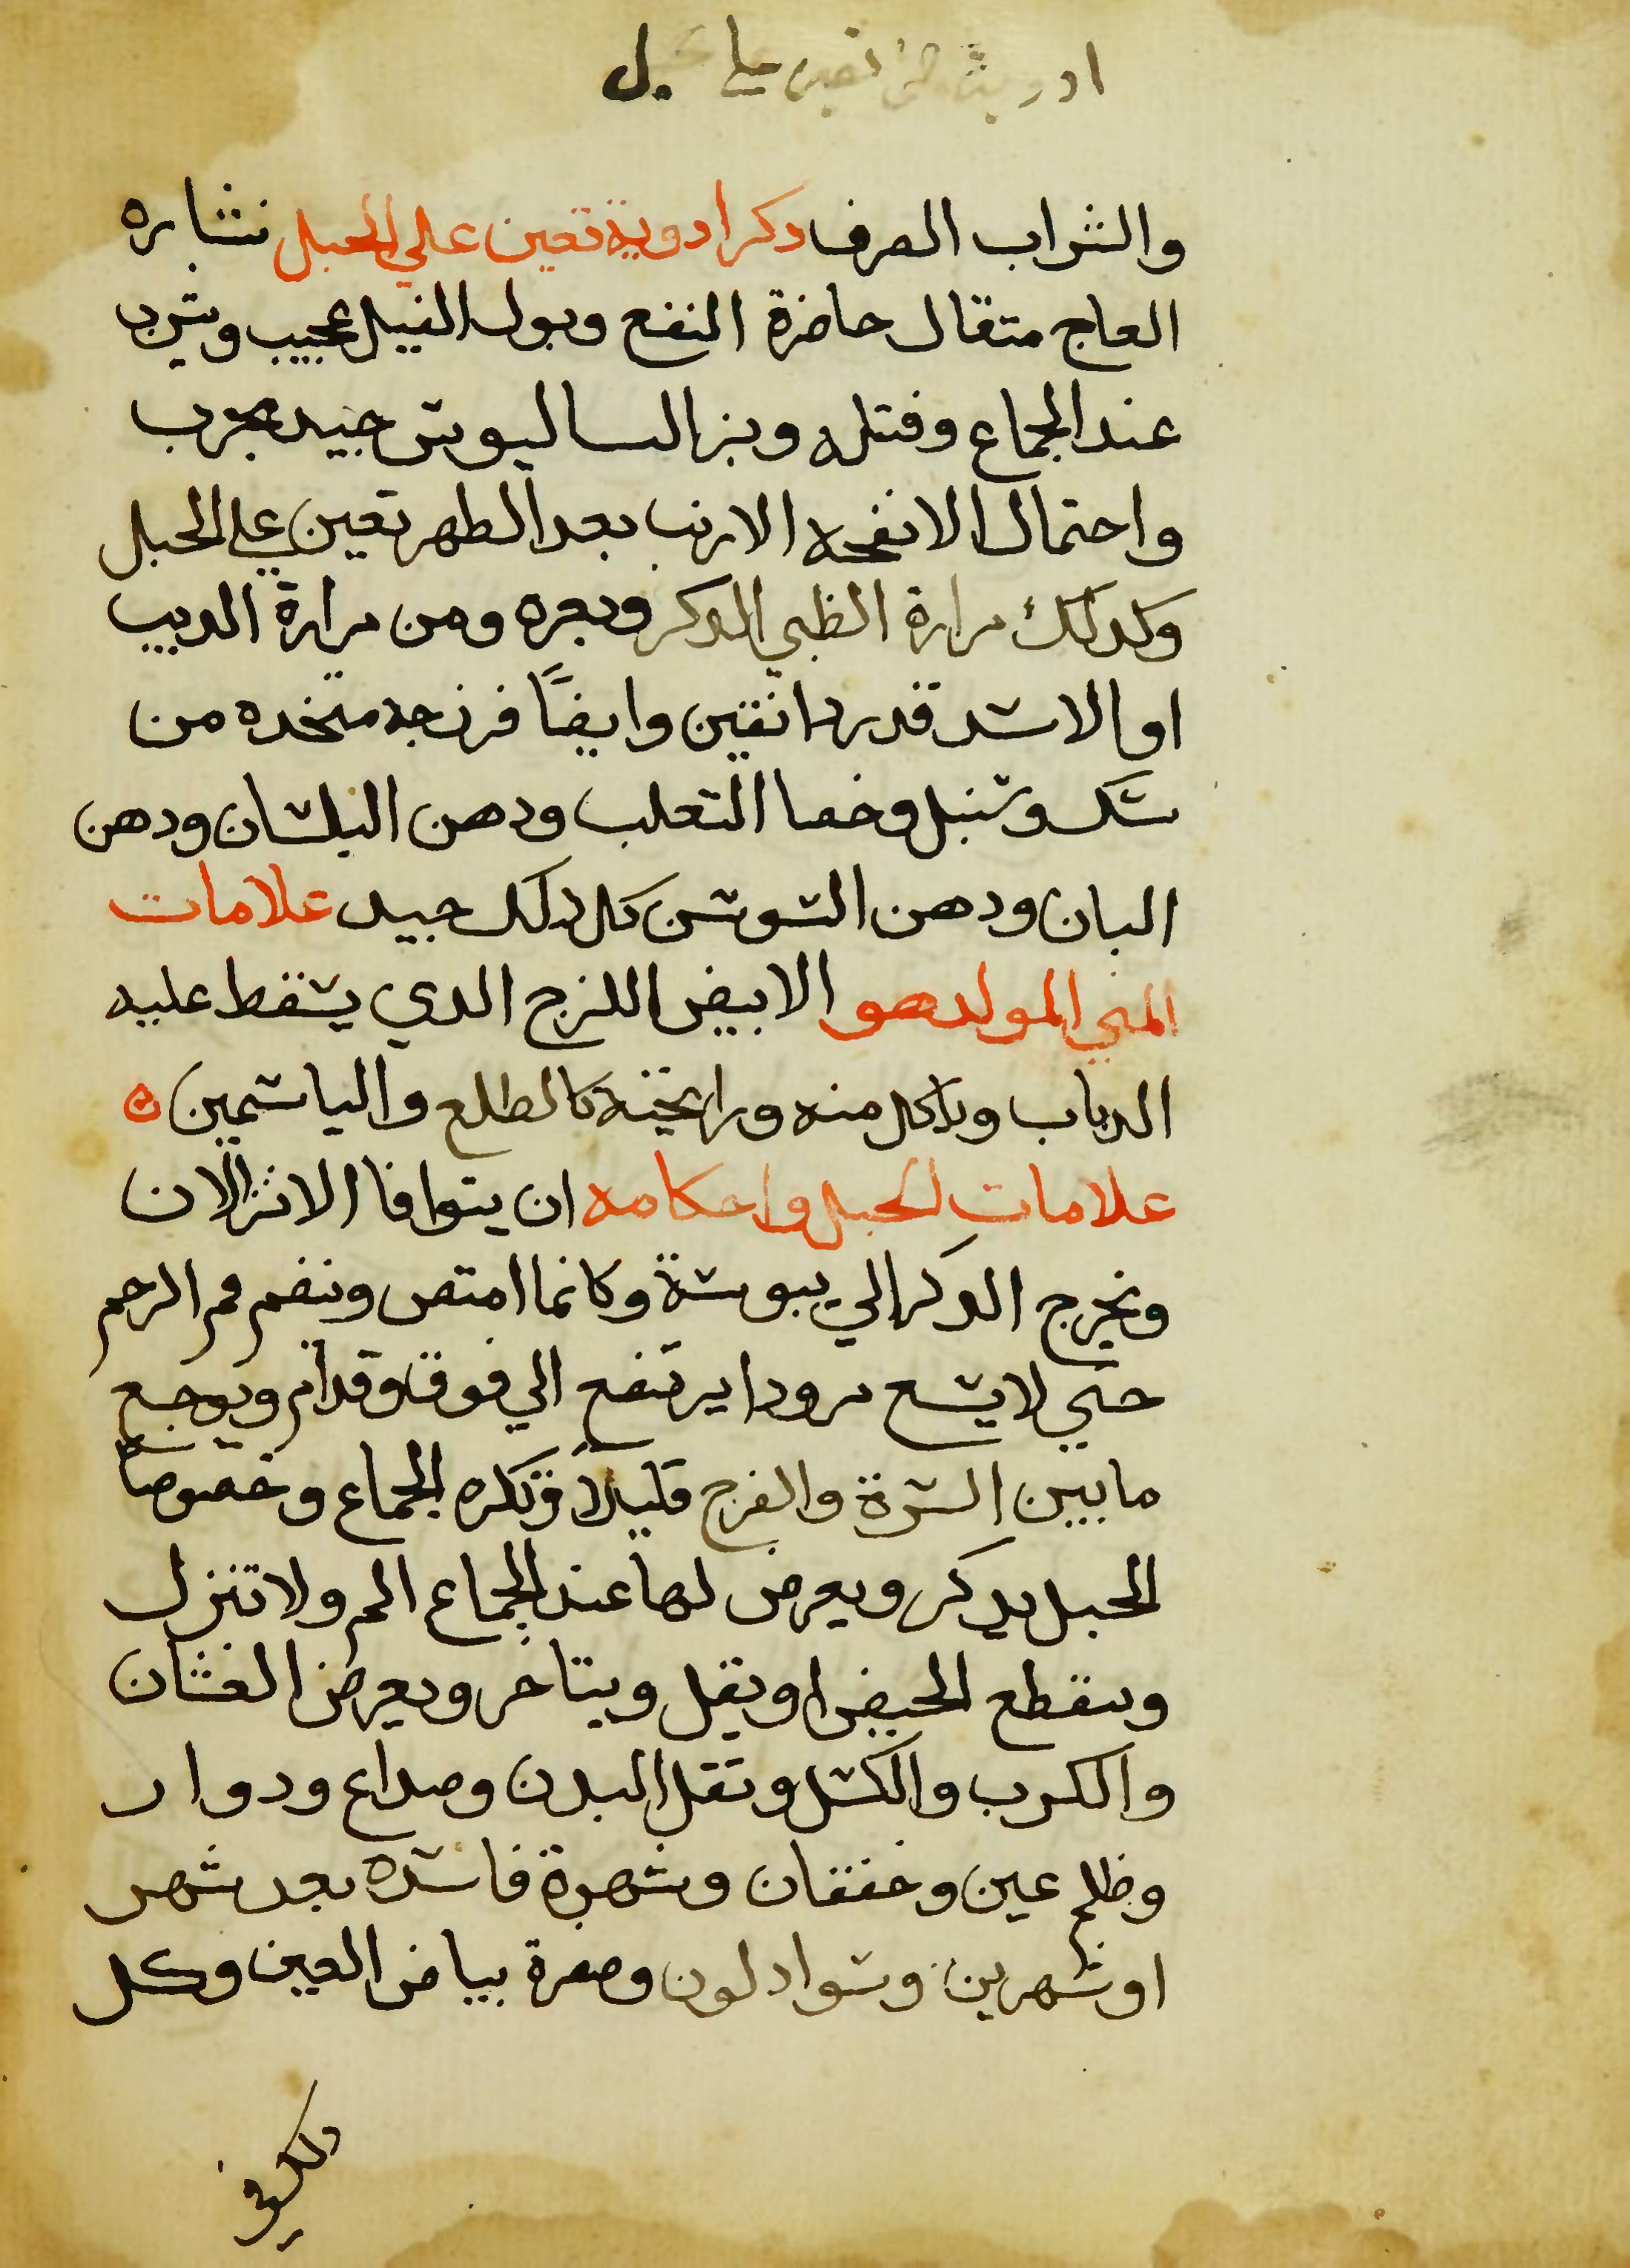 ادوية تعين علي الحبل
والشراب الصرف دكر ادوية تعين علي الحبل نشاره
العاج متقال حاضرة النفع وبول الفيل عجيب ويشرب
عند الجماع وقتله وبزر الساليوس جيد مجرب
واحتمال الانفحه الارنب بعد الطهر تعين علي الحبل
وكدلك مرارة الظبي الدكر وبعره ومن مرارة الديب
او الاسد قدر دانقين وايضًا فرزجه متخده من
سك وسنبل وخصا التعلب ودهن البلسان ودهن
البان ودهن السوسن كل دلك جيد علامات
المني المولد هو الابيض اللزج الدي يسقط عليه
الدباب وياكل منه ورايحته كالطلع والياسمين ه
علامات الحبل واحكامه ان يتوافا الانزالان
ويخرج الدكر الي يبوسة وكانما امتص وينضم فم الرحم
حتي لا يسع مرودا يرتفع الي فوق وقدام ويوجع
ما بين السرة والفرج قليلاً وتكره الجماع وخصوصاً
الحبل بدكر ويعرض لها عند الجماع الم ولا تنزل
وينقطع الحيض او يقل ويتاخر ويعرض الغشان
والكرب والكسل وتقل البدن وصداع ودوار
وظلم عين وخفقان وشهوة فاسده بعد شهر
او شهرين وسواد لون وصفرة بياض العين وكل
دلك في